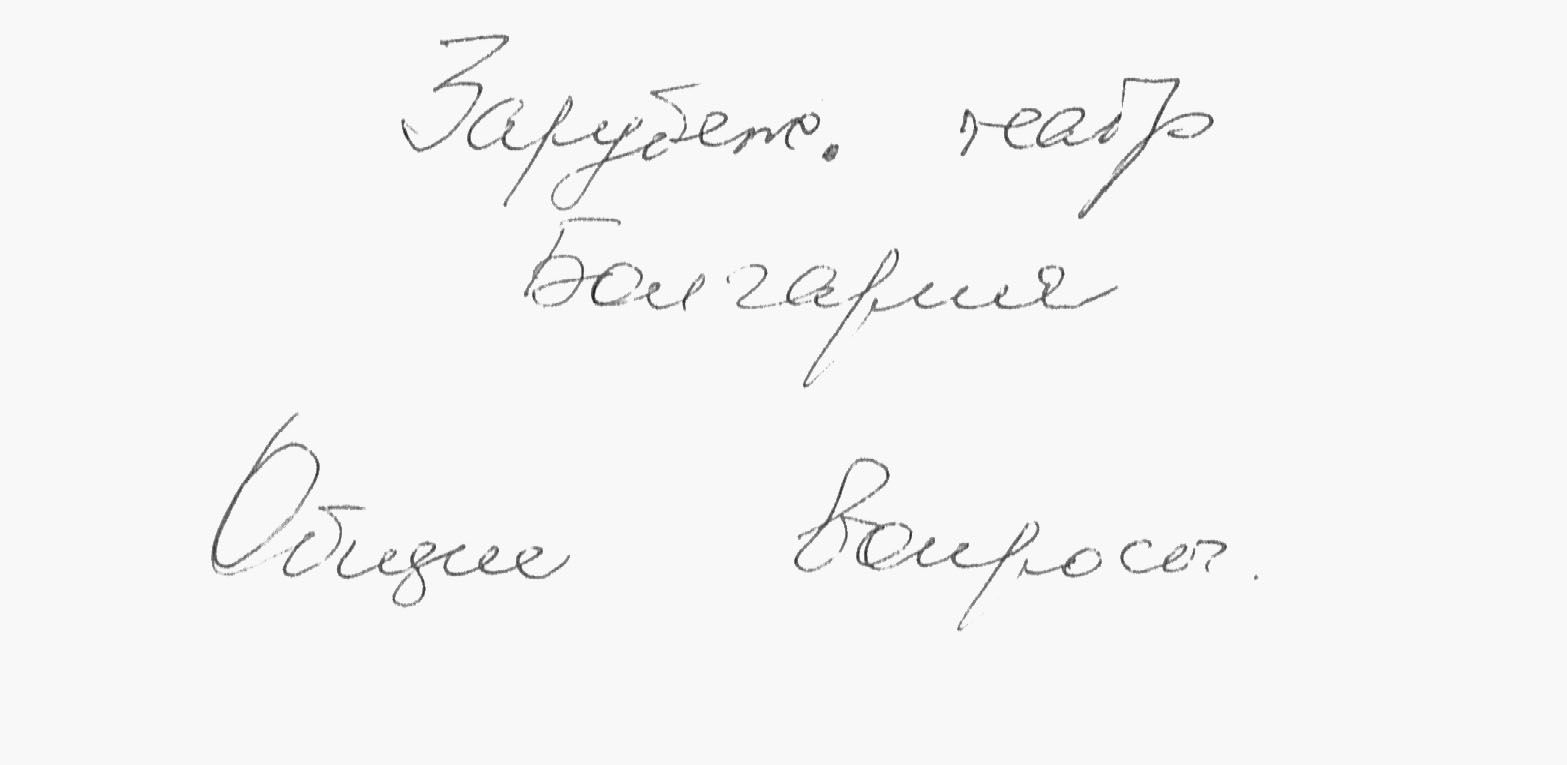 Зарубеж. театр
Болгария
Общие вопросы.